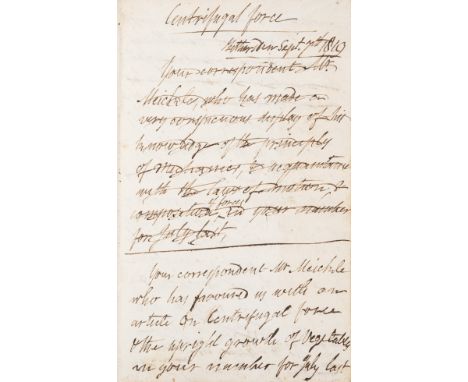 Centrifugal force
Sept. 7th 1819
Your correspondent Mr
Meickle, who has made a
very conspicuous display of his
knowledge of the principles
of Mechanics, & acquaintance
with the laws of motion &
composition of forces, in your number
for July last,
Your correspondent Mr Meickle
who has favoured us with an
article on Centrifugal force
& the upright growth of Vegetables
in your number for July last